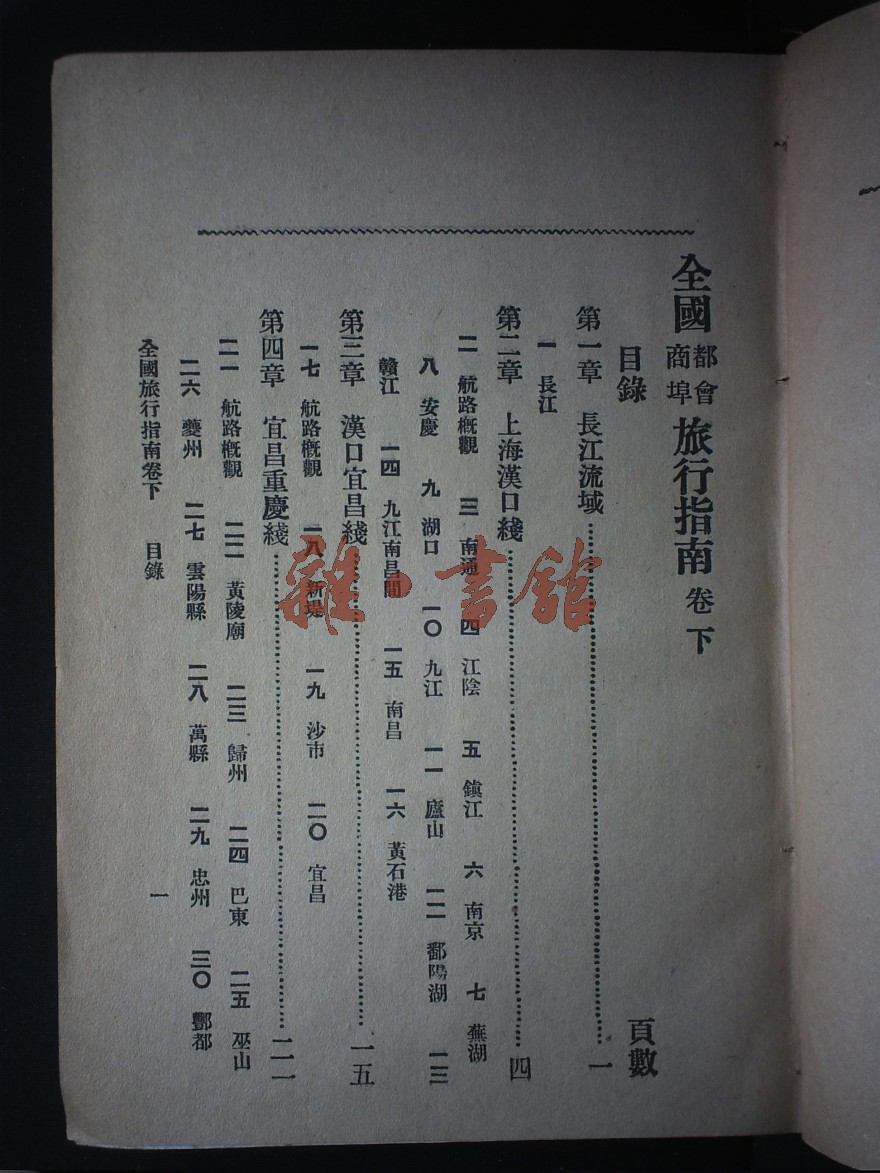 全國都會商埠旅行指南 卷下
目錄 頁數
第一章 長江流域……一
一 長江
第二章 上海漢口綫……四
二 航路概觀 三 南通 四 江陰 五 鎮江 六 南京 七 蕪湖
八 安慶 九 湖口 一〇 九江 一一 廬山 一二 鄱陽湖 一三
贛江 一四 九江南昌間 一五 南昌 一六 黃石港
第三章 漢口宜昌綫……一五
一七 航路概觀 一八 新堤 一九 沙市 二〇 宜昌
第四章 宜昌重慶綫……二一
二一 航路概觀 二二 黃陵廟 二三 歸州 二四 巴東 二五 巫山
二六 夔州 二七 雲陽縣 二八 萬縣 二九 忠州 三〇 酆都
全國旅行指南卷下 目錄 一
雜·書館